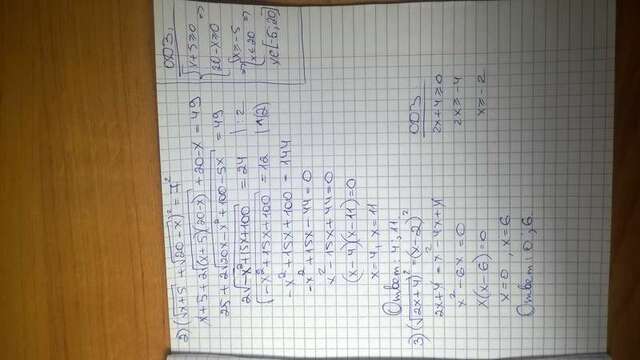 2) (√x+5 + √20-x)² = 7²
x+5+2√(x+5)(20-x) +20-x = 49
25 + 2√20x-x²+100-5x = 49
2√-x²+15x+100 = 24 | :2
√-x²+15x+100 = 12 | (^2)
-x²+15x+100 = 144
-x²+15x-44=0
x²-15x+44=0
(x-4)(x-11)=0
x=4, x=11
Ответ: 4; 11
ОДЗ:
{x+5≥0
20-x≥0 =>
=> {x≥-5
x≤20 =>
x∈[-5;20]
3) (√2x+4)² = (x-2)²
2x+4 = x²-4x+4
x²-6x=0
x(x-6)=0
x=0, x=6
Ответ: 0; 6
ОДЗ
2x+4≥0
2x≥-4
x≥-2